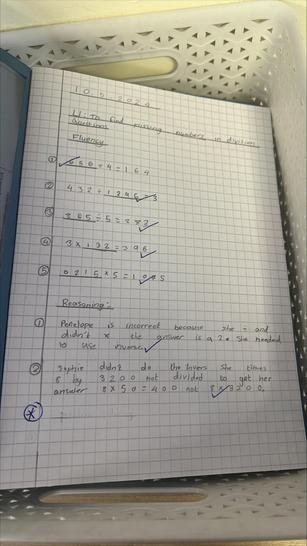 10.5.2024
LI: To find missing numbers in division
questions
Fluency
① 656 ÷ 4 = 164
② 432 ÷ = 3
③ ÷ 5 =
④ 3 × 132 = 396
⑤ 0215 × 5 = 1075
Reasoning:-
① Penelope is incorrect because she ÷ and
didn't × the answer is a 2. She needed
to use inverse
② Sophie didn't do the Invers She times
8 by 3200 not divided to get her
answer 8×50=400 not 8×3200.